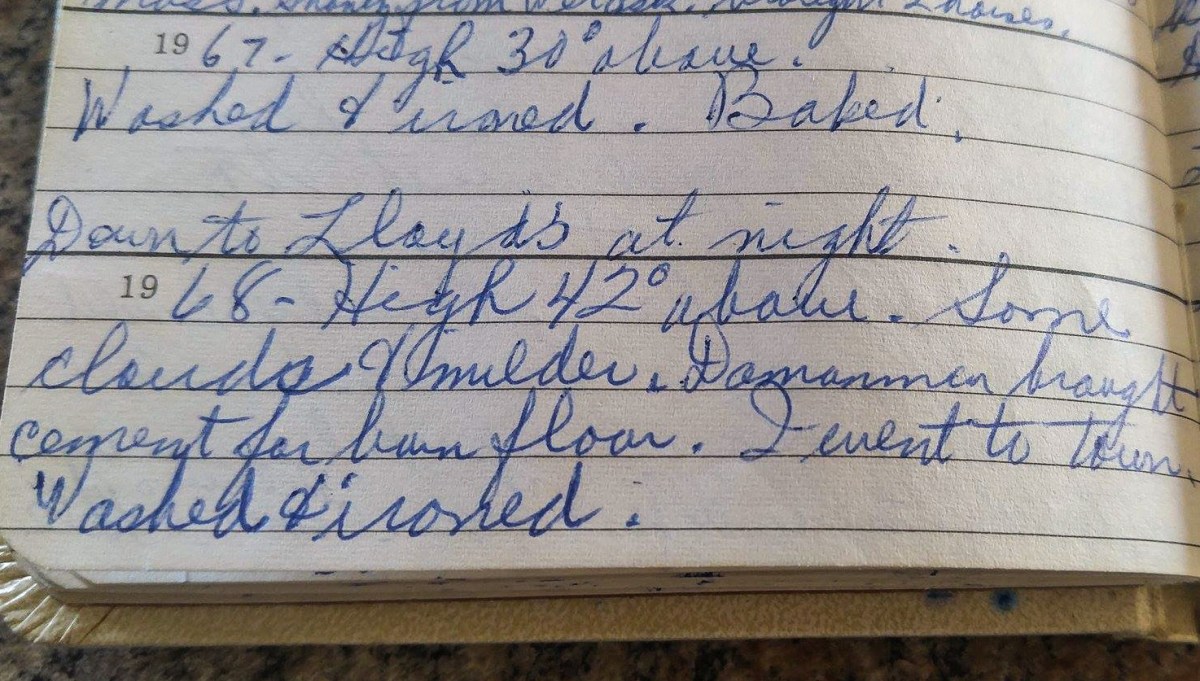 brought 2 horses.
1967- High 30° above.
Washed & ironed. Baked.
Down to Lloyds at night.
1968- High 42° above. Some
clouds & milder. brought
cement for barn floor. I went to town.
Washed & ironed.